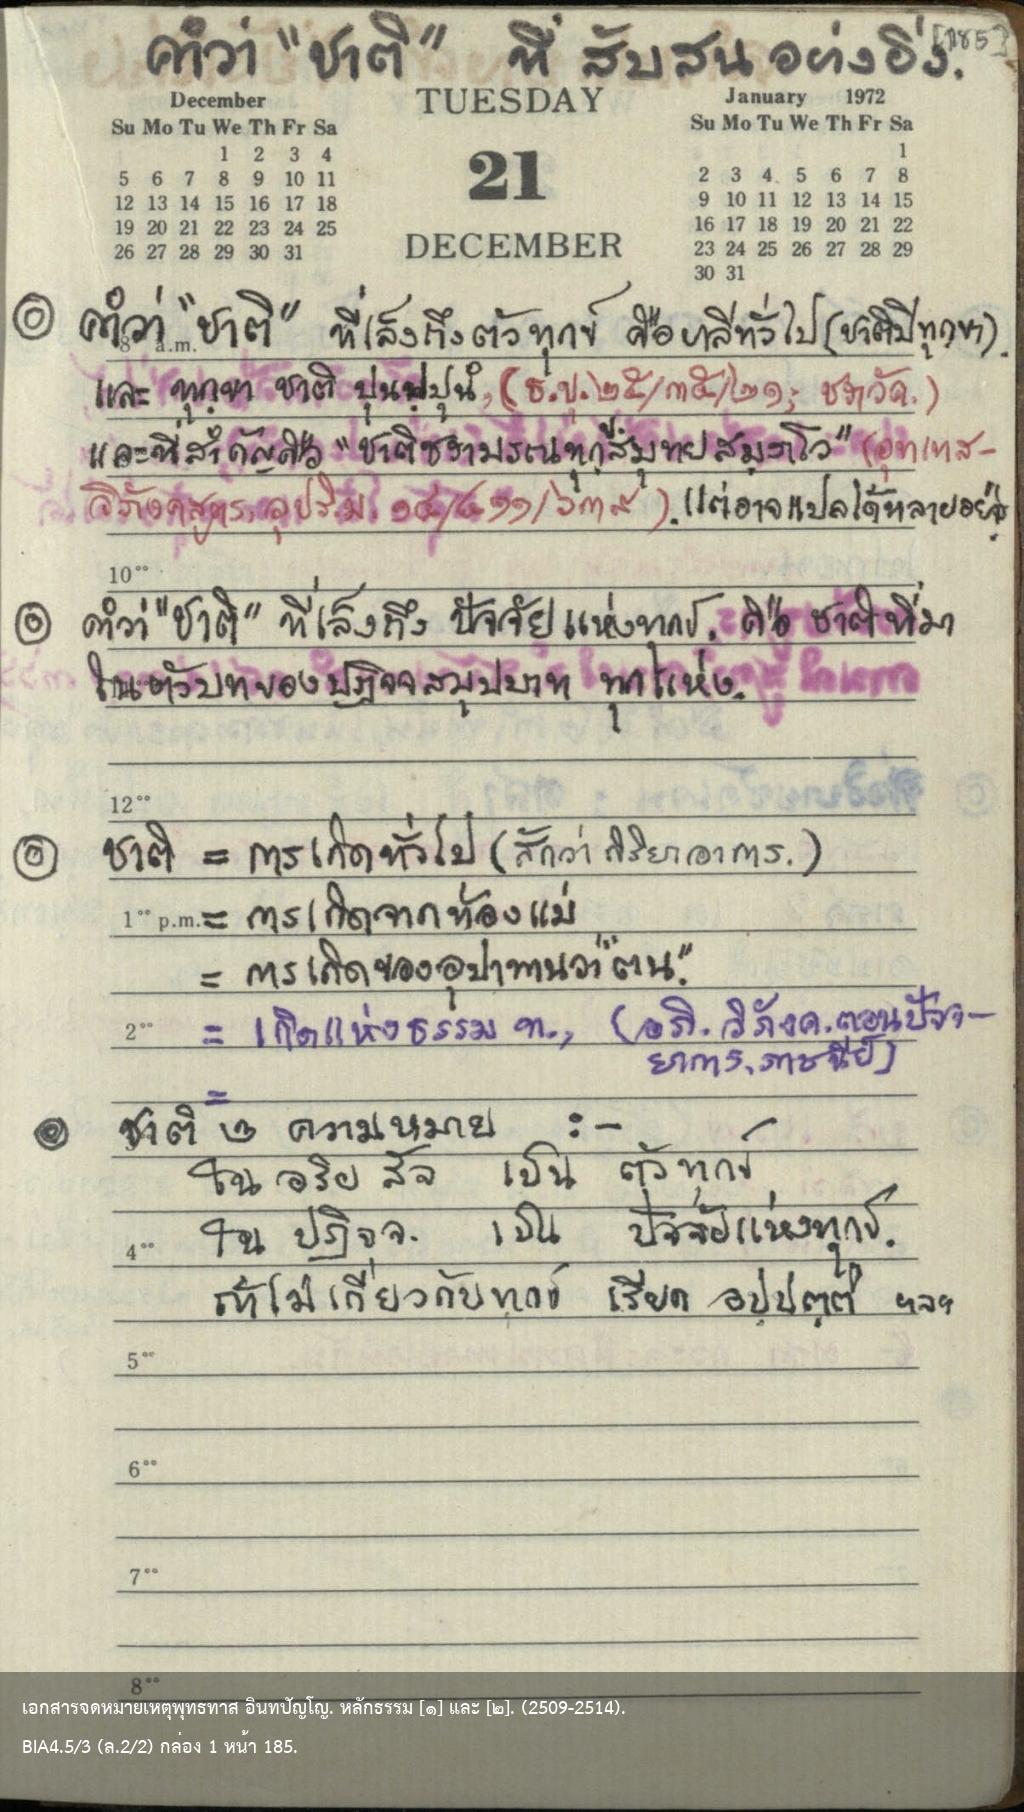 [185]
คำว่า "ชาติ" ที่ สับสน อย่างยิ่ง.
December
TUESDAY
January 1972
Su Mo Tu We Th Fr Sa
1 2 3 4
5 6 7 8 9 10 11
12 13 14 15 16 17 18
19 20 21 22 23 24 25
26 27 28 29 30 31
21
DECEMBER
Su Mo Tu We Th Fr Sa
1
2 3 4 5 6 7 8
9 10 11 12 13 14 15
16 17 18 19 20 21 22
23 24 25 26 27 28 29
30 31
คำว่า "ชาติ" ที่เล็งถึงตัวทุกข์ คือบาลีทั่วไป (ชาติปิทุกฺขา).
8 a.m.
และ ทุกฺขา ชาติ ปุนปฺปุนํ, (ธ.ขุ. ๒๕/๓๕/๒๑; ชราวัค.)
และที่สำคัญคือ "ชาติชรามรณทุกฺขสมุทยสมฺภโว" (อุทเทส-
วิภังคสูตร. อุปริ.ม. ๑๔/๔๑๑/๖๓๙). แต่อาจแปลได้หลายอย่าง
10⁰⁰
คำว่า "ชาติ" ที่เล็งถึง ปัจจัยแห่งทุกข์. คือ ชาติที่มา
ในตัวบทของปฏิจจสมุปบาท ทุกแห่ง.
12⁰⁰
ชาติ = การเกิดทั่วไป (สักว่ากิริยาอาการ.)
1⁰⁰ p.m. = การเกิดจากท้องแม่
= การเกิดของอุปาทานว่า "ตน".
2⁰⁰ = เกิดแห่งธรรม ท., (อภิ. วิภังค. ตอนปัจจ-
ยาการ.
=
ชาติ ๒ ความหมาย :-
ใน อริยสัจ เป็น ตัวทุกข์
4⁰⁰ ใน ปฏิจจ. เป็น ปัจจัยแห่งทุกข์.
ถ้าไม่เกี่ยวกับทุกข์ เรียก อุปฺปตฺติ ฯลฯ
5⁰⁰
6⁰⁰
7⁰⁰
8⁰⁰
เอกสารจดหมายเหตุพุทธทาส อินทปัญโญ. หลักธรรม [๑] และ [๒]. (2509-2514).
BIA4.5/3 (ล.2/2) กล่อง 1 หน้า 185.